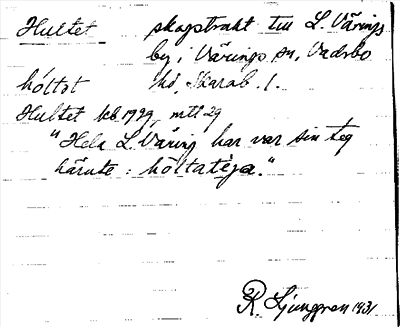 Hultet skogstrakt till L. Värings
by i Värings sn, Vadsbo
hóltət hd, Skarab. l.
Hultet kb 1929, mtl 29
"Hela L. Väring har var sin teg
härute: hòltatèga."
R. Ljunggren 1931